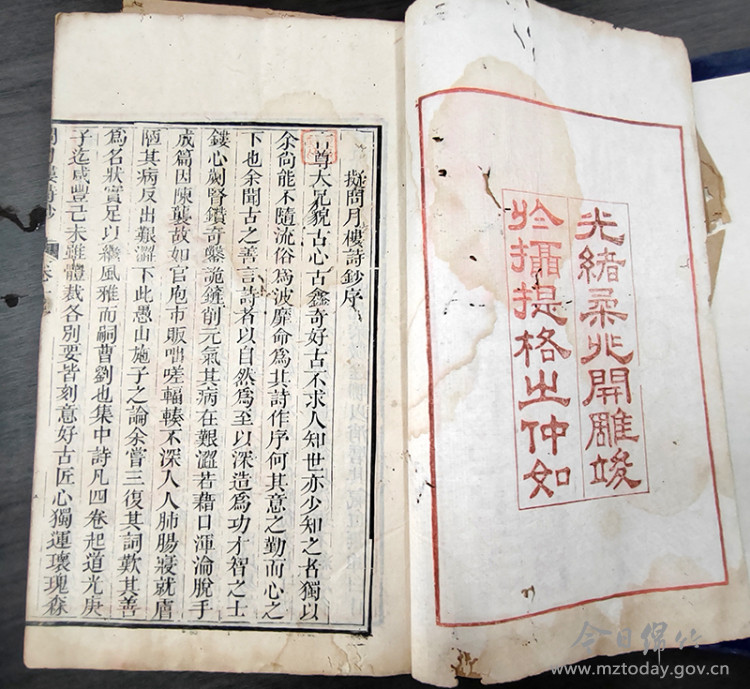 光緒柔兆開雕竣
於攝提格之仲如
擬問月樓詩鈔序
尊大兄貌古心古鑫奇好古不求人知世亦少知之者獨以
余尚能不隨流俗爲波靡命爲其詩作序何其意之勤而心之
下也余聞古之善言詩者以自然爲至以深造爲功才智之士
鏤心劌腎鑽奇鑿詭縫削元氣其病在艱澀若藉口渾淪脫手
成篇因陳襲故如官庖市販咄嗟輻輳不深入人肺腸寢就
陋其病反出艱澀下此愚山施子之論余嘗三復其詞歎其善
爲名狀實足以繼風雅而嗣曹劉也集中詩凡四卷起道光庚
子迄咸豐己未雖體裁各別要皆刻意好古匠心獨運瓌瑰森
月樓詩鈔 卷
今日绵竹
www.mztoday.gov.cn